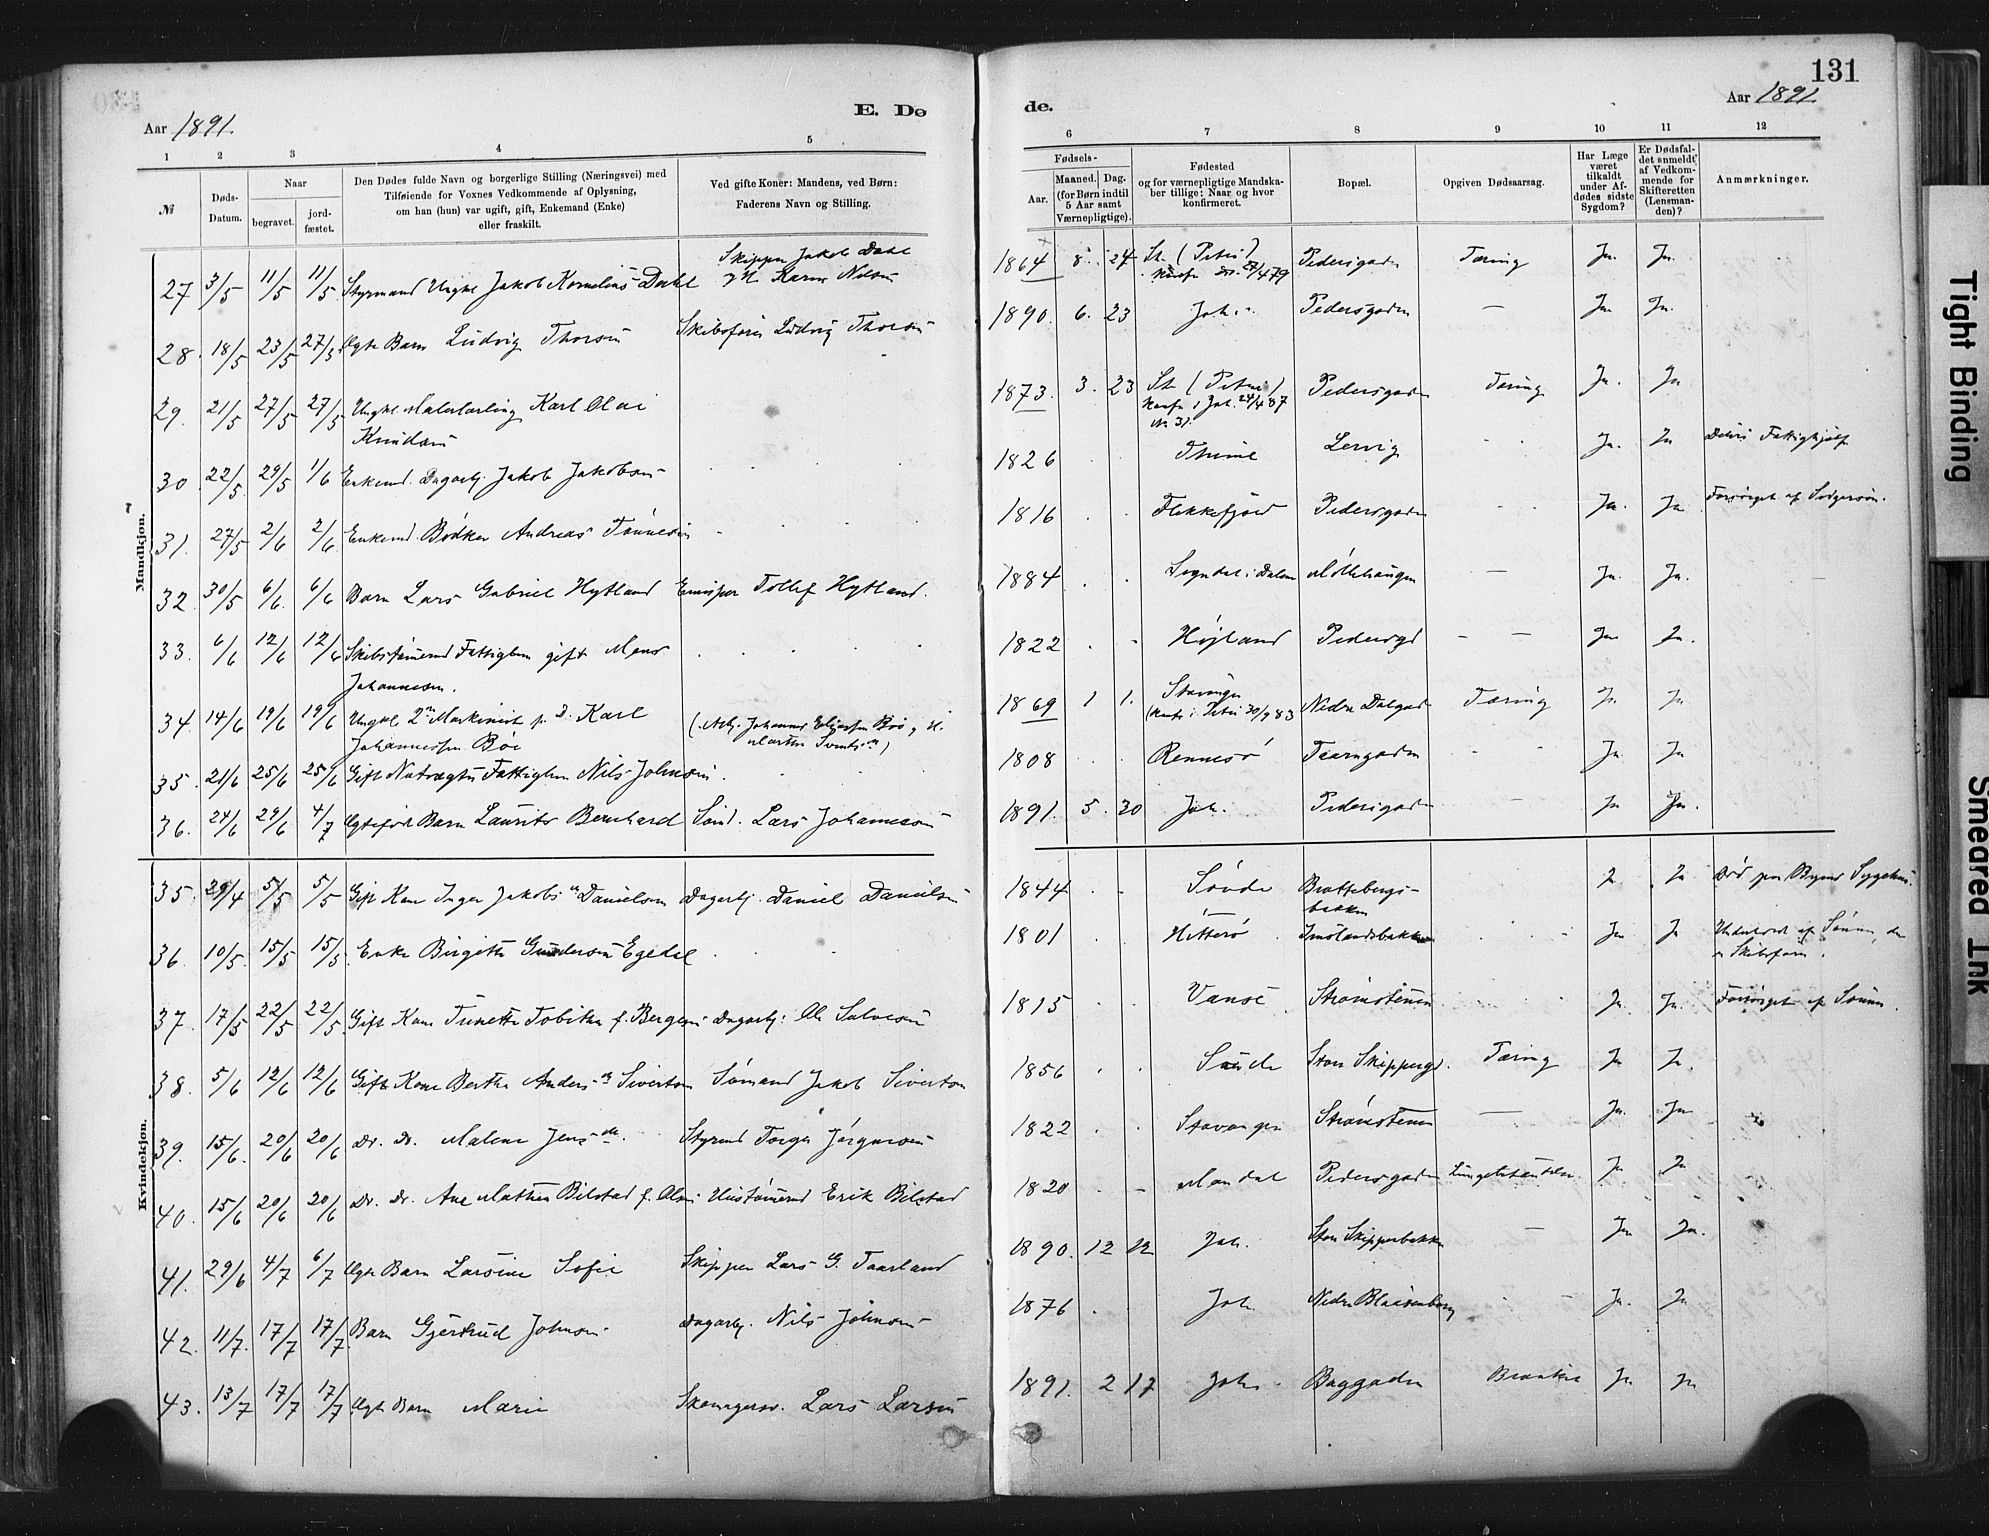 131
E. Dø
de.
Aar 1891.
Aar 1891.
1 2 3 4 5
6 7 8 9 10 11 12
№
Døds-Datum.
Naar
begravet.
jord-fæstet.
Den Dødes fulde Navn og borgerlige Stilling (Næringsvei) med
Tilføiende for Voxnes Vedkommende af Oplysning,
om han (hun) var ugift, gift, Enkemand (Enke)
eller fraskilt.
Ved gifte Koner: Mandens, ved Børn:
Faderens Navn og Stilling.
Fødsels-
Aar.
Maaned. Dag.
(for Børn indtil
5 Aar samt
Værnepligtige).
Fødested
og for værnepligtige Mandska-
ber tillige: Naar og hvor
konfirmeret.
Bopæl.
Opgiven Dødsaarsag.
Har Læge
været
tilkaldt
under Af-
dødes sidste
Sygdom?
Er Dødsfal-
det anmeldt
af Vedkom-
mende for
Skifteretten
(Lensman-
den)?
Anmærkninger.
Mandkjøn.
27 3/5 11/5 11/5 Styrmand Ungkl Jakob Kornelius Dahl Skipper Jakob Dahl 1864 8. 24 St. (Petri) Pedersgaden Tæring Ja. Ja.
28. 18/5 23/5 27/5 Ægte Barn Ludvig Thorsen Skibsfører Ludvig Thorsen 1890. 6. 23 Joh. Pedersgaden — Ja Ja.
29. 21/5 27/5 27/5 Ungkl Malerlærling Karl Olai 1873. 3. 23 St. (Petri) Pedersgaden Tæring Ja. Ja
Knudsen Konf. i Joh. 24/4 87
30. 22/5 29/5 1/6 Enkemd. Dagarbj. Jakob Jakobsen 1826 Thime Lervig Ja. Ja Delvis Fattighjælp
31. 27/5 2/6 2/6 Enkemd. Bødker Andreas Tønnesen 1816 Flekkefjord Pedersgaden Ja. Ja Forsørget af
32. 30/5 6/6. 6/6 Barn Lars Gabriel Hytland Tollef Hytland. 1884 Sogndal i Dalene Møllehaugen — Ja. Ja.
33. 6/6 12/6 12/6 Skibstømmermd Fattiglem gift Mons 1822 Højland Pedersgd — — Ja Ja.
Johannesen.
34. 14/6 19/6 19/6 Ungkl 2den Maskinist p. D. Karl (Arb. Johannes Eliassen Bøe, H. 1869 1 1. Stavanger Nedre Dalgade Tæring Ja Ja
Johannessen Bøe Konf. i Petri 30/9 83
35. 21/6 25/6 25/6 Gift Fattiglem Nils Johnsen. 1808 Rennesø Taarngaden Ja Ja
36. 24/6 29/6 4/7 Ægtefødt Barn Laurits Bernhard Sømd. Lars Johannesen 1891. 5. 30 Joh. Pedersgaden — Ja Ja.
Kvindekjøn.
35. 29/4 5/5 5/5 Gift Kone Inger Jakobsdr Danielsen Dagarbj. Daniel Danielsen 1844 Søvde Brattebergs- Ja Ja Død paa Byens Sygehus.
bakken
36. 10/5. 15/5 15/5 Enke Birgitte Gundersen Egedal 1801 Hitterø Imslandsbakken Ja Ja Underholdt af Sønnen, der
er Skibsfører.
37. 17/5 22/5 22/5. Gift Kone Tobithe f. Bergesen Dagarbj. Ole Salvesen 1815 Vanse Strømstenen Ja Ja. Forsørget af Sønnen.
38. 5/6 12/6 12/6 Gift Kone Berthe Andersdr Sivertsen Sømand Jakob Sivertsen 1856 Saude Store Skippergd. Tæring Ja Ja.
39. 15/6. 20/6 20/6 Do. Do. Malene Jensdr. Styrmd Torger Jørgensen 1822 Stavanger Strømstenen — Ja. Ja
40. 15/6 20/6 20/6 Do. Do. Ane Mathea Bilstad f. Olsen Hustømmermd Erik Bilstad 1820 Mandal Pedersgaden Lungebetændelse Ja Ja
41. 29/6 4/7 6/7 Ægte Barn Larsine Sofie Skipper Lars G. Taarland 1890. 12 12 Joh. Store Skipperbakke — Ja Ja.
42. 11/7. 17/7 17/7. Barn Gjertrud Johnsen Dagarbj. Nils Johnsen 1876 Joh. Nedre Blaasenborg Ja. Ja
43. 13/7 17/7 17/7. Ægte Barn Marie Lars Larsen 1891. 2 17 Joh. Baggaden Bronkit Ja Ja
Tight Binding
Smeared Ink